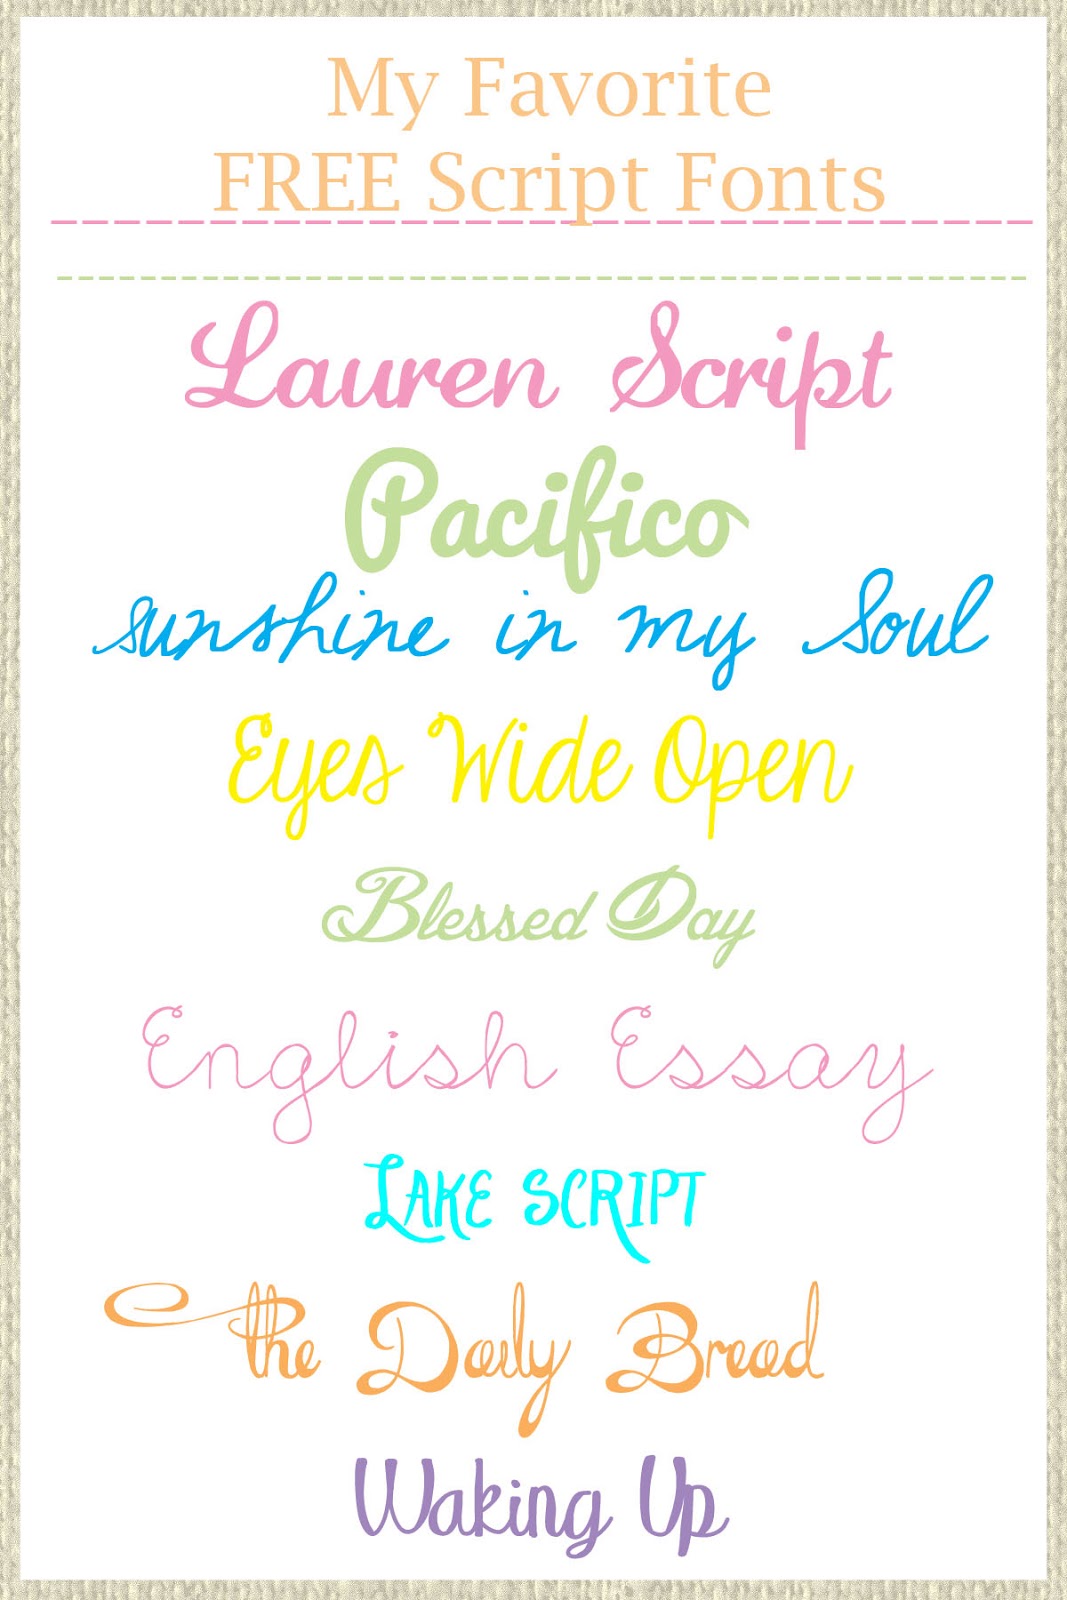 My Favorite
FREE Script Fonts
Lauren Script
Pacifico
sunshine in my Soul
Eyes Wide Open
Blessed Day
English Essay
LAKE SCRIPT
the Daily Bread
Waking Up